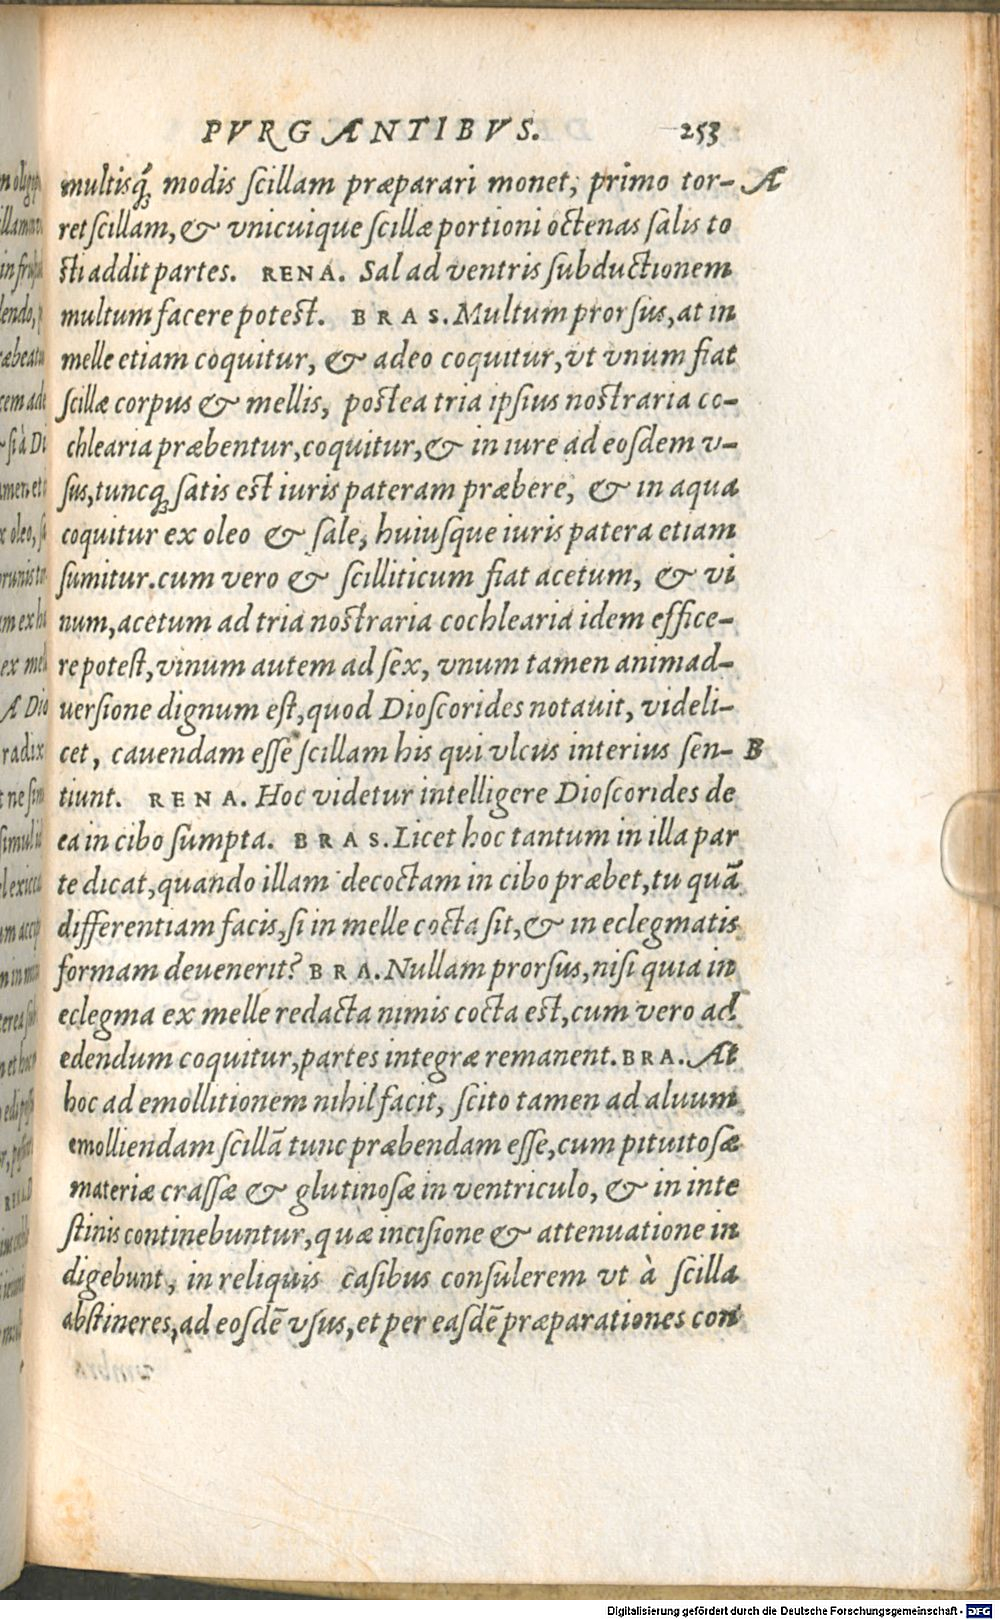 PVRGANTIBVS. 253
multisq́; modis ſcillam præparari monet, primo tor- A
ret ſcillam, & vnicuique ſcillæ portioni octenas ſalis to
ſti addit partes. RENA. Sal ad ventris ſubductionem
multum facere poteſt. BRAS. Multum prorſus, at in
melle etiam coquitur, & adeo coquitur, vt vnum fiat
ſcillæ corpus & mellis, poſtea tria ipſius noſtraria co-
chlearia præbentur, coquitur, & in iure ad eoſdem v-
ſus, tuncq; ſatis eſt iuris pateram præbere, & in aqua
coquitur ex oleo & ſale, huiuſque iuris patera etiam
ſumitur. cum vero & ſcilliticum fiat acetum, & vi
num, acetum ad tria noſtraria cochlearia idem effice-
re poteſt, vinum autem ad ſex, vnum tamen animad-
uerſione dignum eſt, quod Dioſcorides notauit, videli-
cet, cauendam eſſe ſcillam his qui vlcus interius ſen- B
tiunt. RENA. Hoc videtur intelligere Dioſcorides de
ea in cibo ſumpta. BRAS. Licet hoc tantum in illa par
te dicat, quando illam decoctam in cibo præbet, tu quā
differentiam facis, ſi in melle cocta ſit, & in eclegmatis
formam deuenerit? BRA. Nullam prorſus, niſi quia in
eclegma ex melle redacta nimis cocta eſt, cum vero ad
edendum coquitur, partes integræ remanent. BRA. At
hoc ad emollitionem nihil facit, ſcito tamen ad aluum
emolliendam ſcillā tunc præbendam eſſe, cum pituitoſæ
materiæ craſſæ & glutinoſæ in ventriculo, & in inte
ſtinis continebuntur, quæ inciſione & attenuatione in
digebunt, in reliquis caſibus conſulerem vt à ſcilla
abſtineres, ad eoſdē vſus, et per eaſdē præparationes con
Digitalisierung gefördert durch die Deutsche Forschungsgemeinschaft - DFG